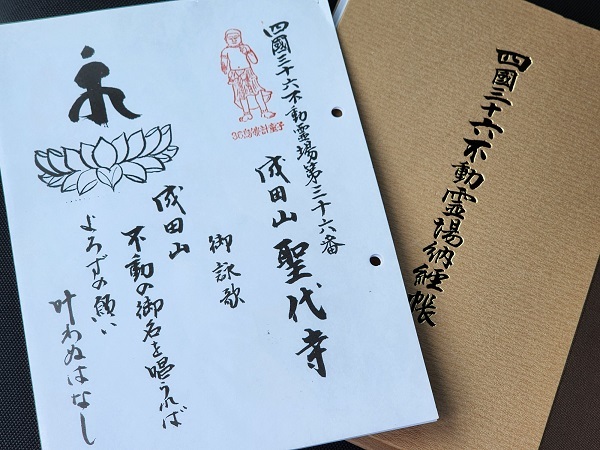 四國三十六不動霊場第三十六番
成田山 聖代寺
御詠歌
成田山
不動の御名を唱うれば
よろずの願い
叶わぬはなし
四國三十六不動霊場納經帳